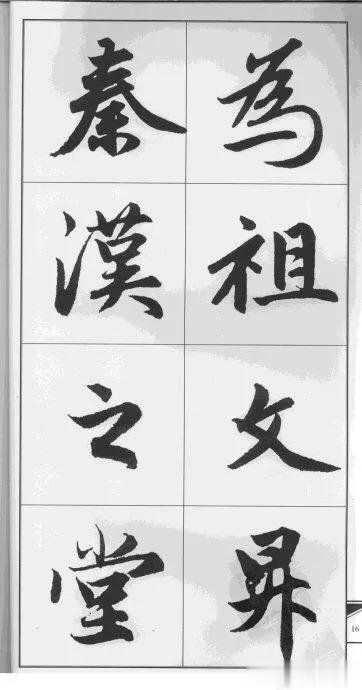 為祖文昇
秦漢之堂
16